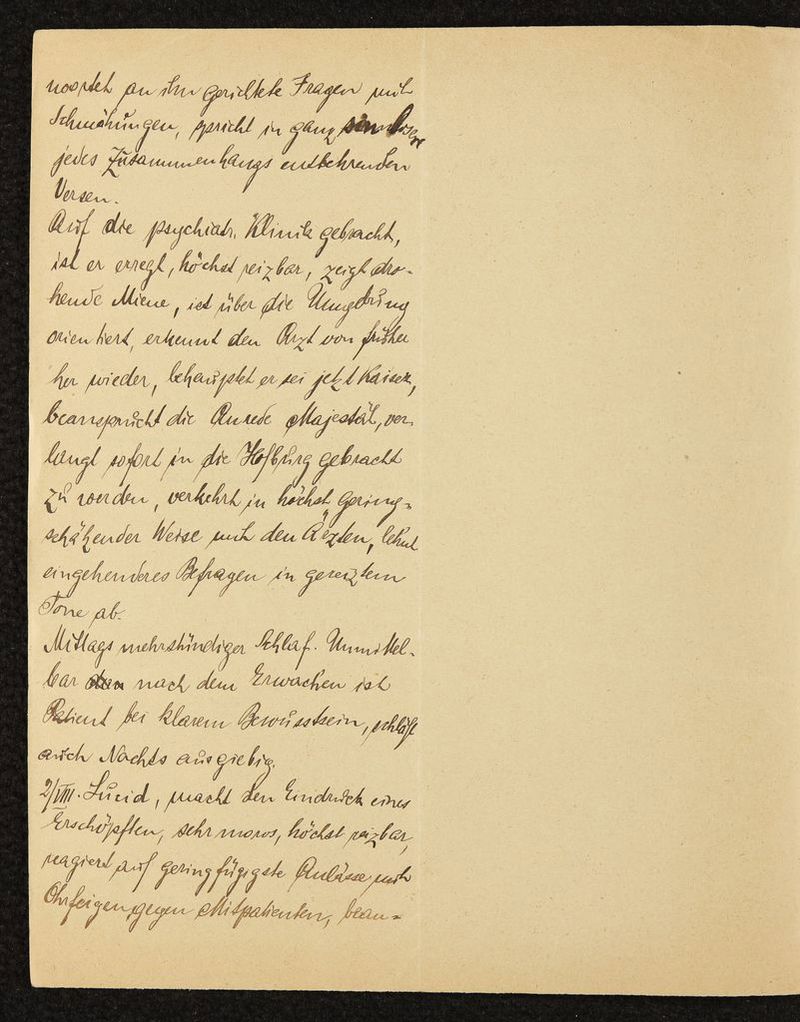 wortet an ihn gerichtete Fragen mit
Schmähungen, spricht in ganz sinnlosen
jedes Zusammenhangs entbehrenden
Versen.
Auf die psychiatr. Klinik gebracht,
ist er erregt, höchst reizbar, zeigt dro-
hende Miene, ist über die Umgebung
orientiert, erkennt den Arzt von früher
her wieder, behauptet er sei jetzt Kaiser,
beansprucht die Anrede Majestät, ver-
langt sofort in die Hofburg gebracht
zu werden, verkehrt in höchst gering-
schätzender Weise mit den Äezten, lehnt
eingehenderes Befragen in gereiztem
Tone ab.
Mittags mehrstündiger Schlaf. Unmittel-
bar nach dem Erwachen ist
Patient bei klarem Bewusstsein, schläft
auch Nachts ausgiebig.
2/VIII. Lucid, macht den Eindruck eines
Erschöpften, sehr moros, höchst reizbar,
reagiert auf geringfügigste Anlässe mit
Ohrfeigen gegen Mitpatienten, bean-